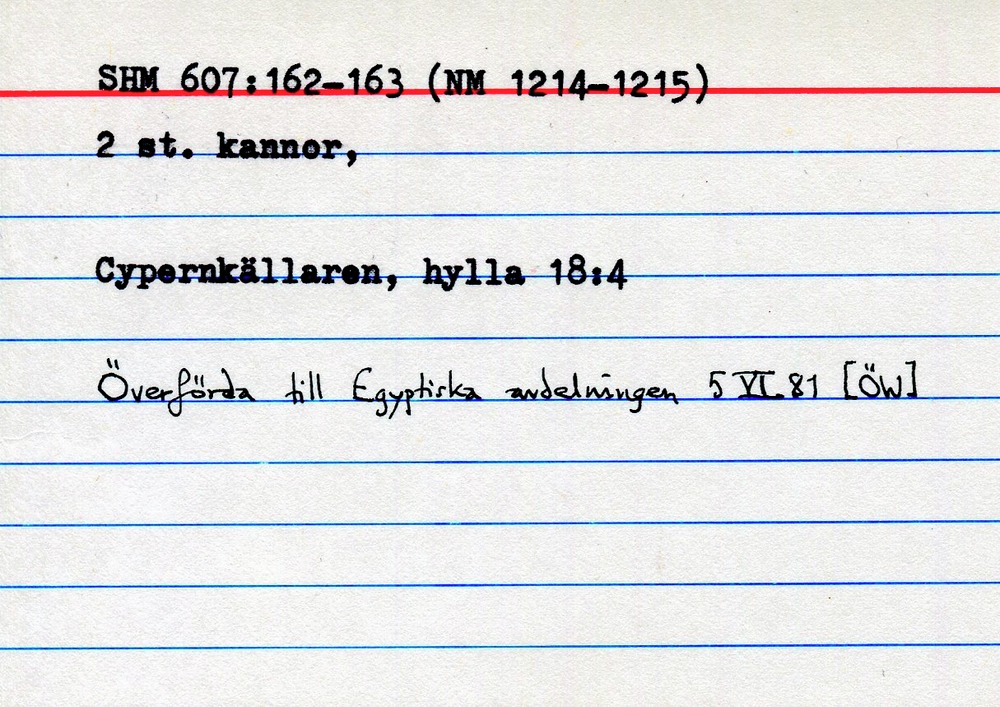 SHM 607:162-163 (NM 1214-1215)
2 st. kannor,
Cypernkällaren, hylla 18:4
Överförda till Egyptiska avdelningen 5 VI.81 [ÖW]